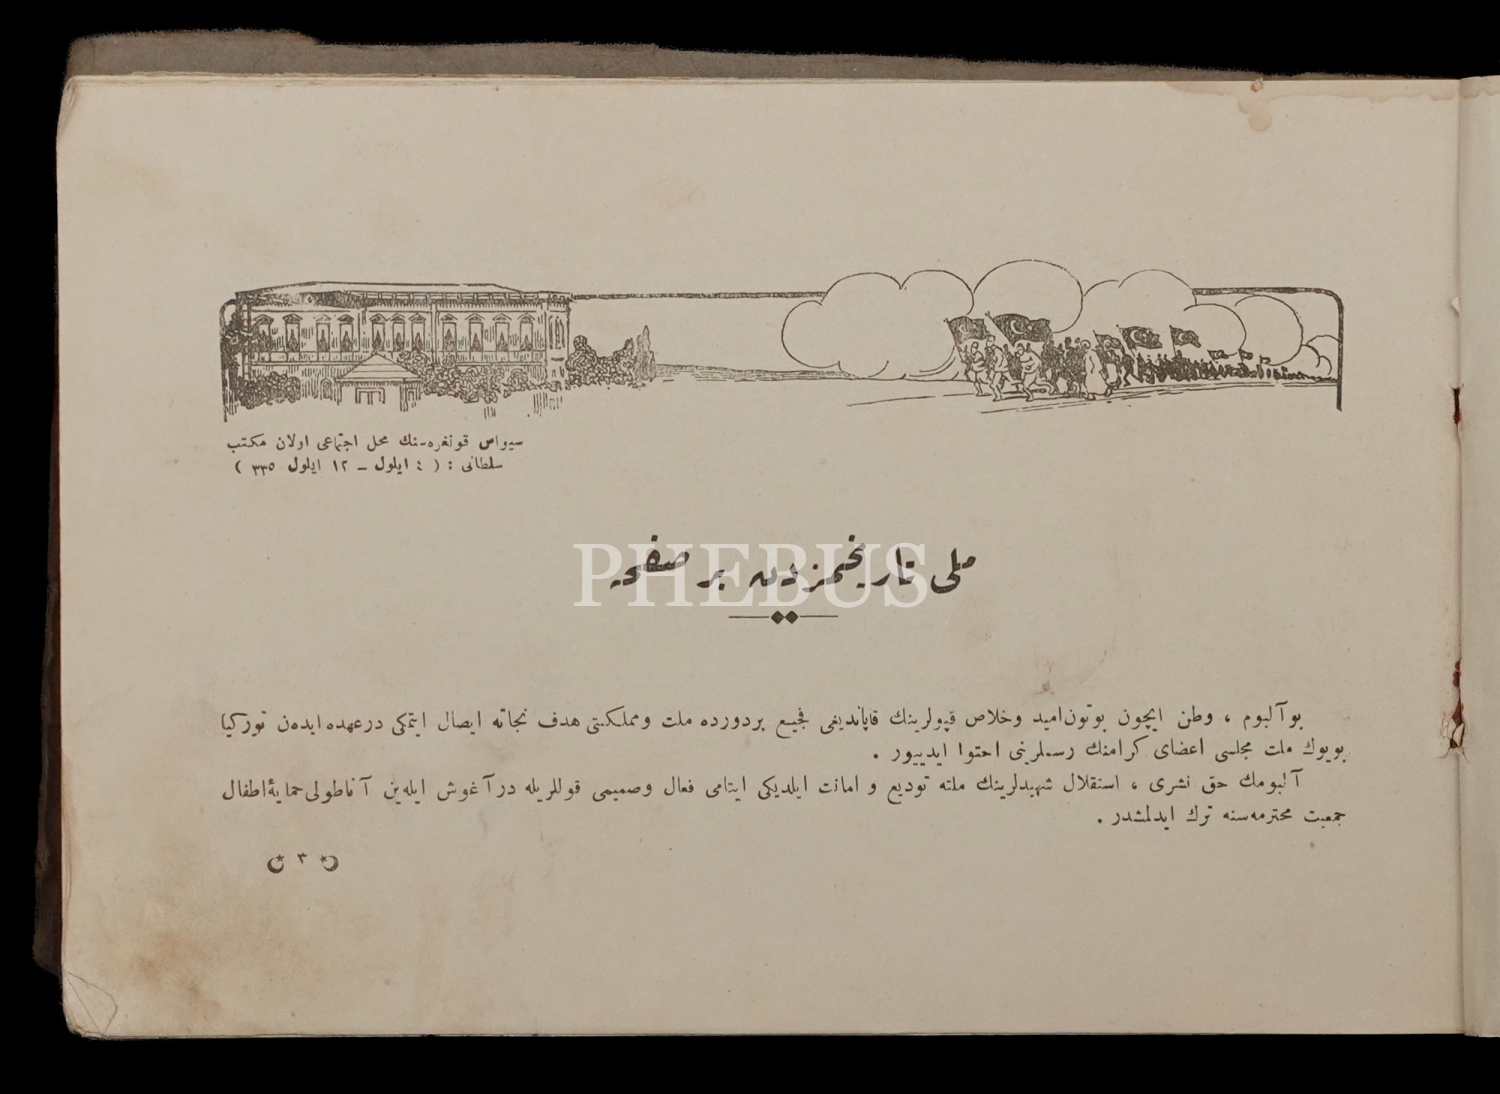 سيواس قونغره‌سنك محل اجتماعى اولان مكتب
سلطانى : ( ٤ ايلول ـ ١٢ ايلول ٣٣٥ )
ملى تاريخمزدن بر صفحه
PHEBUS
بو آلبوم ، وطن ايچون بوتون اميد وخلاص قپولرينك قاپانديغى فجيع بردورده ملت ومملكتى هدف نجاته ايصال ايتمكى درعهده ايدەن توركيا
بويوك ملت مجلسى اعضاى كرامنك رسملرينى احتوا ايدييور .
آلبومك حق نشرى ، استقلال شهيدلرينك ملته توديع و امانت ايلديكى ايتامى فعال وصميمى قوللريله درآغوش ايلەين آناطولى حمايۀ اطفال
جمعيت محترمه‌سنه ترك ايدلمشدر .
٣